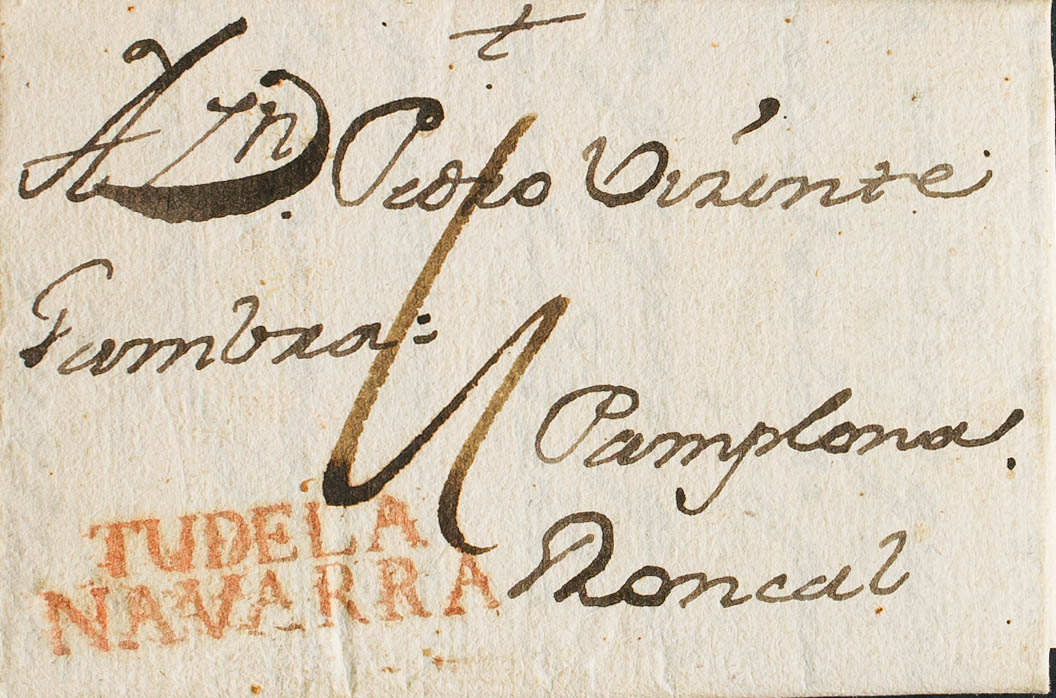 A Dn. Pedro Vizente
Gambra =
Pamplona.
Roncal
TUDELA
NAVARRA